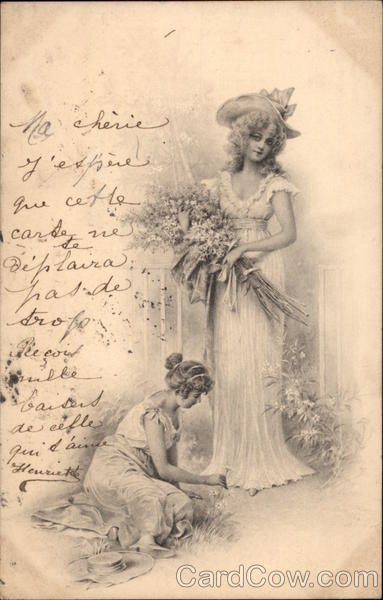 Ma chérie
J'espère
que cette
carte ne
te
déplaira
pas de
trop
Reçois
mille
baisers
de celle
qui t'aime
Henriette
CardCow.com